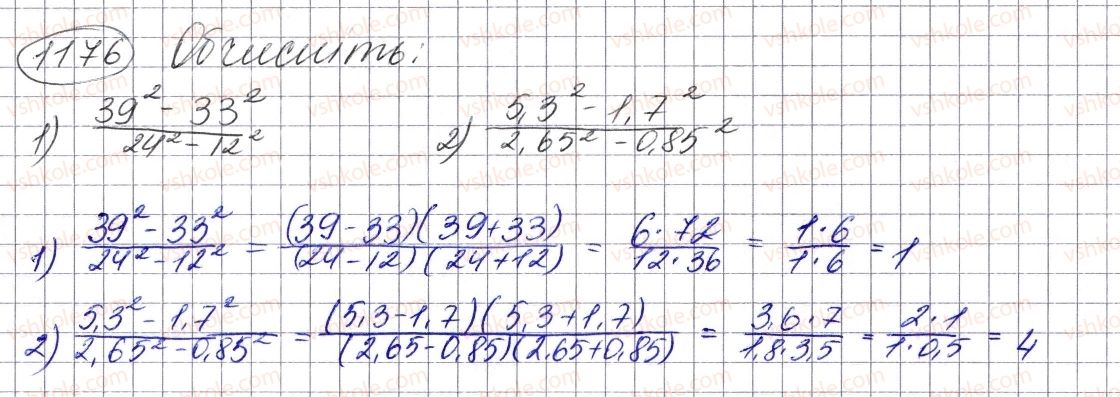 1176 Обчислить:
1) (39² - 33²)/(24² - 12²) 2) (5,3² - 1,7²)/(2,65² - 0,85²)
1) (39² - 33²)/(24² - 12²) = ((39-33)(39+33))/((24-12)(24+12)) = (6·72)/(12·36) = (1·6)/(1·6) = 1
2) (5,3² - 1,7²)/(2,65² - 0,85²) = ((5,3-1,7)(5,3+1,7))/((2,65-0,85)(2,65+0,85)) = (3,6·7)/(1,8·3,5) = (2·1)/(1·0,5) = 4